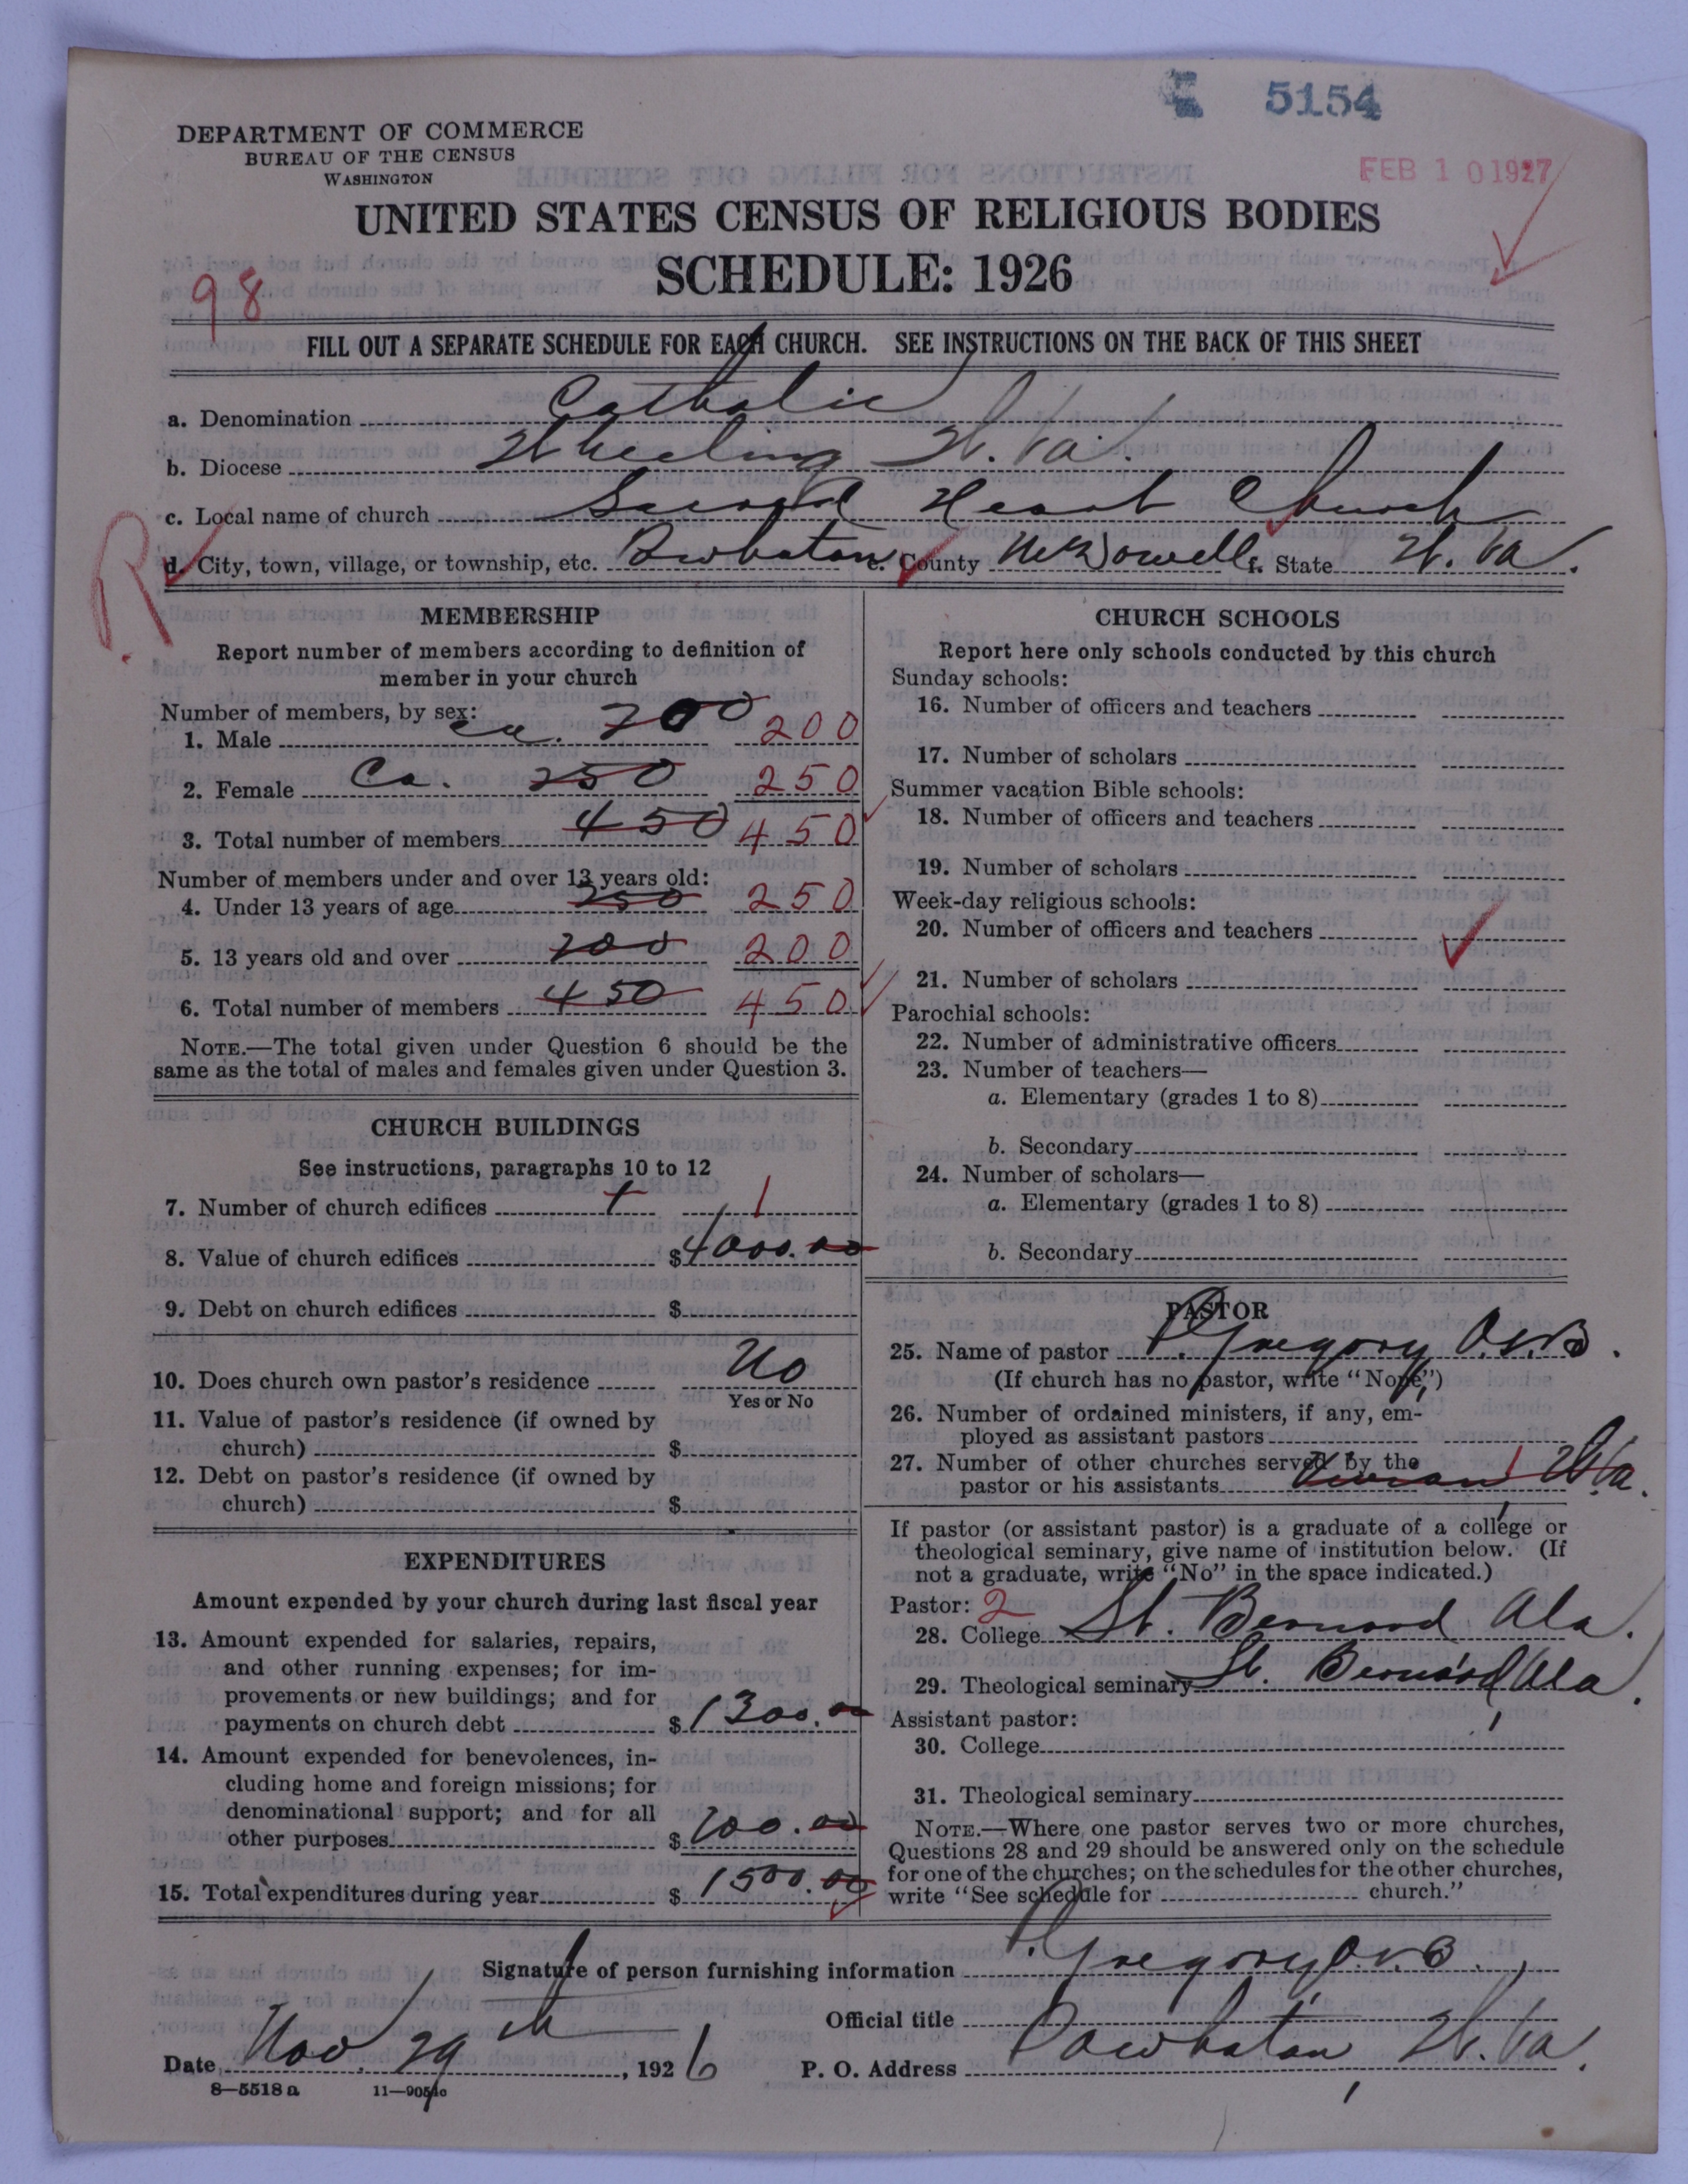 5154
DEPARTMENT OF COMMERCE
BUREAU OF THE CENSUS
WASHINGTON
FEB 10 1927
UNITED STATES CENSUS OF RELIGIOUS BODIES
SCHEDULE: 1926
98
FILL OUT A SEPARATE SCHEDULE FOR EACH CHURCH. SEE INSTRUCTIONS ON THE BACK OF THIS SHEET
a. Denomination Catholic
b. Diocese Wheeling W. Va.
c. Local name of church Sacred Heart Church
d. City, town, village, or township, etc. Powhatan e. County McDowell f. State W. Va.
R.
MEMBERSHIP
Report number of members according to definition of
member in your church
Number of members, by sex:
1. Male ca. 200 200
2. Female Ca. 250 250
3. Total number of members 450 450
Number of members under and over 13 years old:
4. Under 13 years of age 250 250
5. 13 years old and over 200 200
6. Total number of members 450 450
NOTE.—The total given under Question 6 should be the
same as the total of males and females given under Question 3.
CHURCH BUILDINGS
See instructions, paragraphs 10 to 12
7. Number of church edifices 1 1
8. Value of church edifices $4000.00
9. Debt on church edifices $
10. Does church own pastor's residence No
Yes or No
11. Value of pastor's residence (if owned by
church) $
12. Debt on pastor's residence (if owned by
church) $
EXPENDITURES
Amount expended by your church during last fiscal year
13. Amount expended for salaries, repairs,
and other running expenses; for im-
provements or new buildings; and for
payments on church debt $1300.00
14. Amount expended for benevolences, in-
cluding home and foreign missions; for
denominational support; and for all
other purposes $200.00
15. Total expenditures during year $1500.00
CHURCH SCHOOLS
Report here only schools conducted by this church
Sunday schools:
16. Number of officers and teachers
17. Number of scholars
Summer vacation Bible schools:
18. Number of officers and teachers
19. Number of scholars
Week-day religious schools:
20. Number of officers and teachers
21. Number of scholars
Parochial schools:
22. Number of administrative officers
23. Number of teachers—
a. Elementary (grades 1 to 8)
b. Secondary
24. Number of scholars—
a. Elementary (grades 1 to 8)
b. Secondary
PASTOR
25. Name of pastor P. Gregory, O.S.B.
(If church has no pastor, write "None")
26. Number of ordained ministers, if any, em-
ployed as assistant pastors
27. Number of other churches served by the
pastor or his assistants 1 W. Va.
If pastor (or assistant pastor) is a graduate of a college or
theological seminary, give name of institution below. (If
not a graduate, write "No" in the space indicated.)
Pastor: 2
28. College St. Bernard, Ala.
29. Theological seminary St. Bernard, Ala.
Assistant pastor:
30. College
31. Theological seminary
NOTE.—Where one pastor serves two or more churches,
Questions 28 and 29 should be answered only on the schedule
for one of the churches; on the schedules for the other churches,
write "See schedule for church."
Signature of person furnishing information P. Gregory, O.S.B.
Official title
Date Nov 29th, 1926 P. O. Address Powhatan, W. Va.
8—5518a 11—9051c